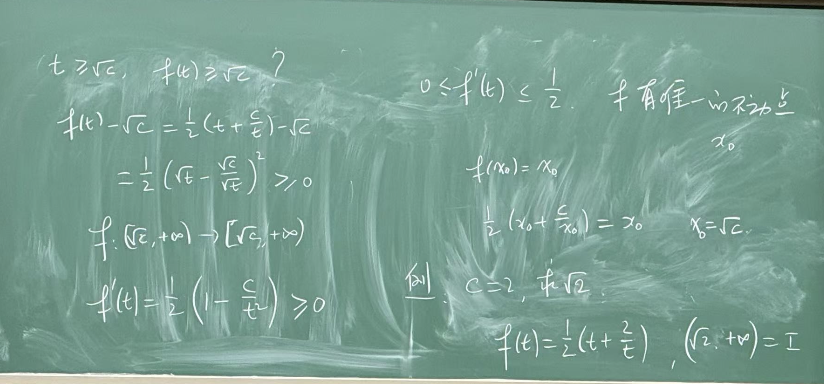 t ≥ √c, f(t) ≥ √c ?
f(t) - √c = 1/2 (t + c/t) - √c
= 1/2 (√t - √c/√t)² ≥ 0
f: [√c, +∞) → [√c, +∞)
f'(t) = 1/2 (1 - c/t²) ≥ 0
0 ≤ f'(t) ≤ 1/2. f 有唯一的不动点
x₀
f(x₀) = x₀
1/2 (x₀ + c/x₀) = x₀ x₀ = √c.
例. c = 2, 求√2.
f(t) = 1/2 (t + 2/t), (√2, +∞) = I